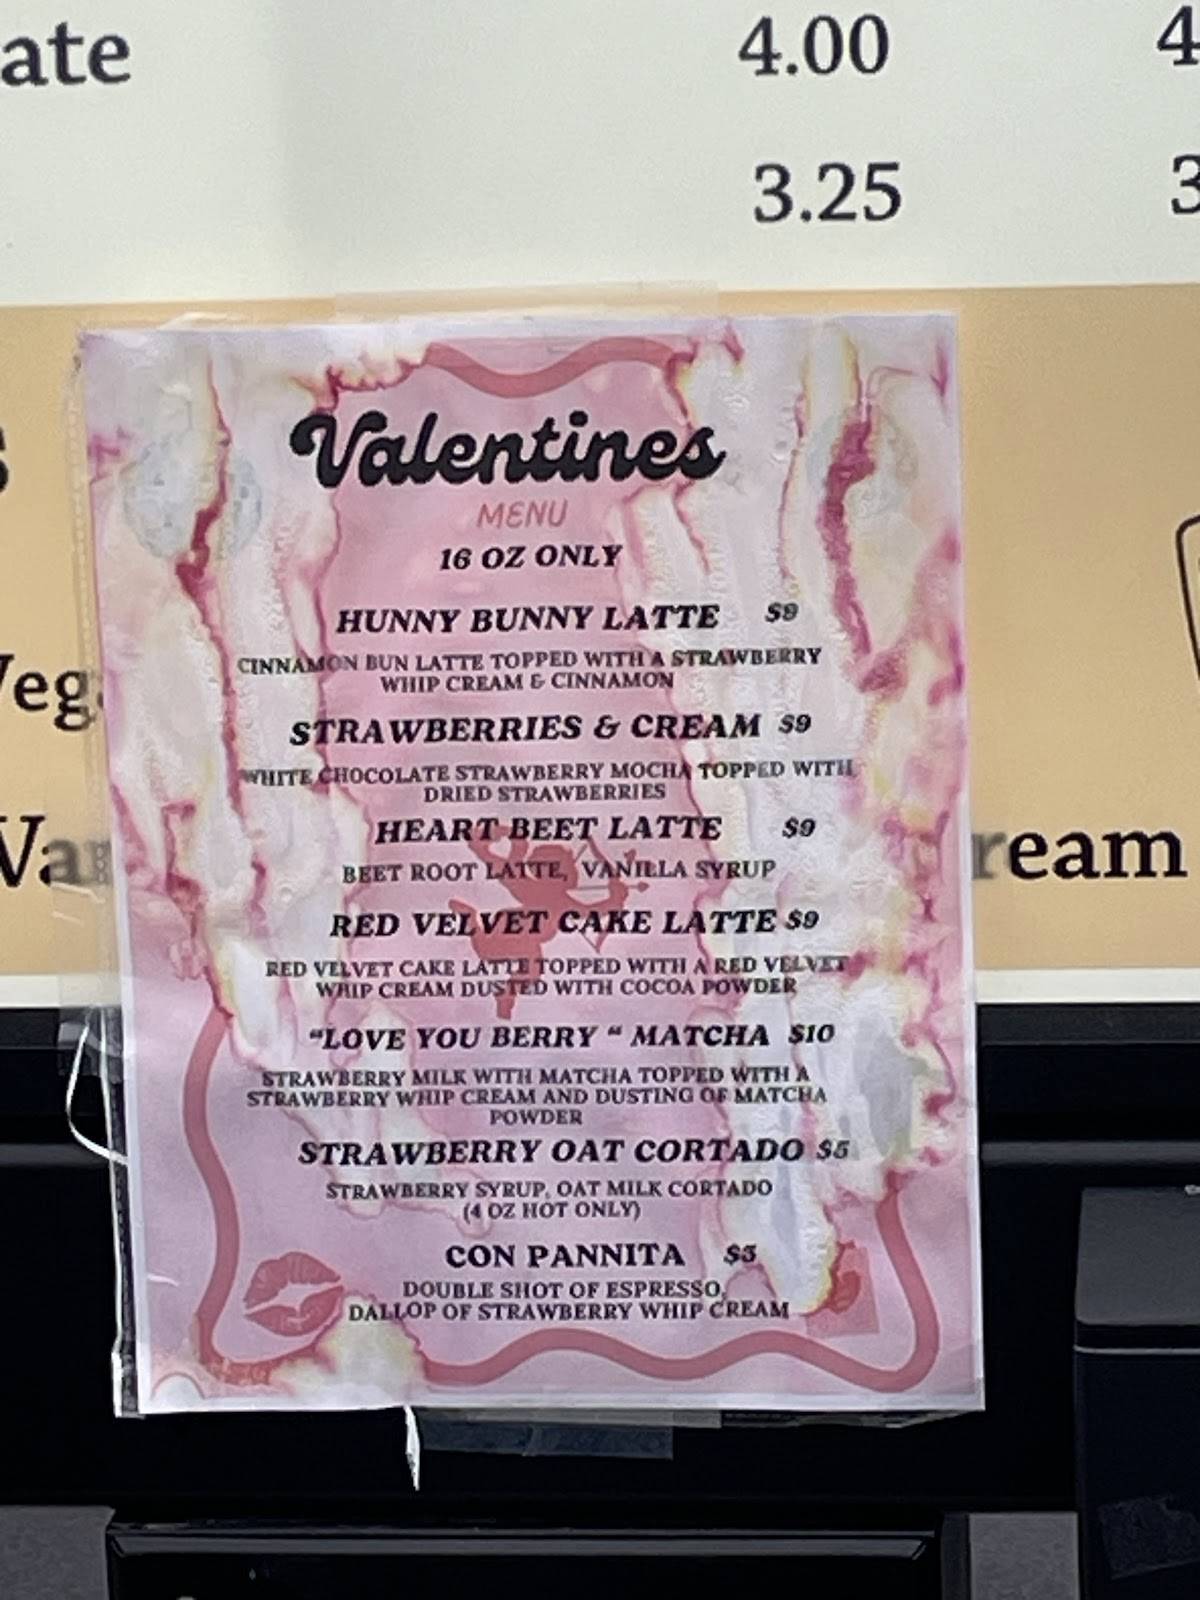 ate 4.00 4
3.25 3
Valentines
MENU
16 OZ ONLY
HUNNY BUNNY LATTE $9
CINNAMON BUN LATTE TOPPED WITH A STRAWBERRY
WHIP CREAM & CINNAMON
STRAWBERRIES & CREAM $9
WHITE CHOCOLATE STRAWBERRY MOCHA TOPPED WITH
DRIED STRAWBERRIES
HEART BEET LATTE $9
BEET ROOT LATTE, VANILLA SYRUP
RED VELVET CAKE LATTE $9
RED VELVET CAKE LATTE TOPPED WITH A RED VELVET
WHIP CREAM DUSTED WITH COCOA POWDER
"LOVE YOU BERRY " MATCHA $10
STRAWBERRY MILK WITH MATCHA TOPPED WITH A
STRAWBERRY WHIP CREAM AND DUSTING OF MATCHA
POWDER
STRAWBERRY OAT CORTADO $5
STRAWBERRY SYRUP, OAT MILK CORTADO
(4 OZ HOT ONLY)
CON PANNITA
DOUBLE SHOT OF ESPRESSO,
DALLOP OF STRAWBERRY WHIP CREAM
s
Veg
Van
ream